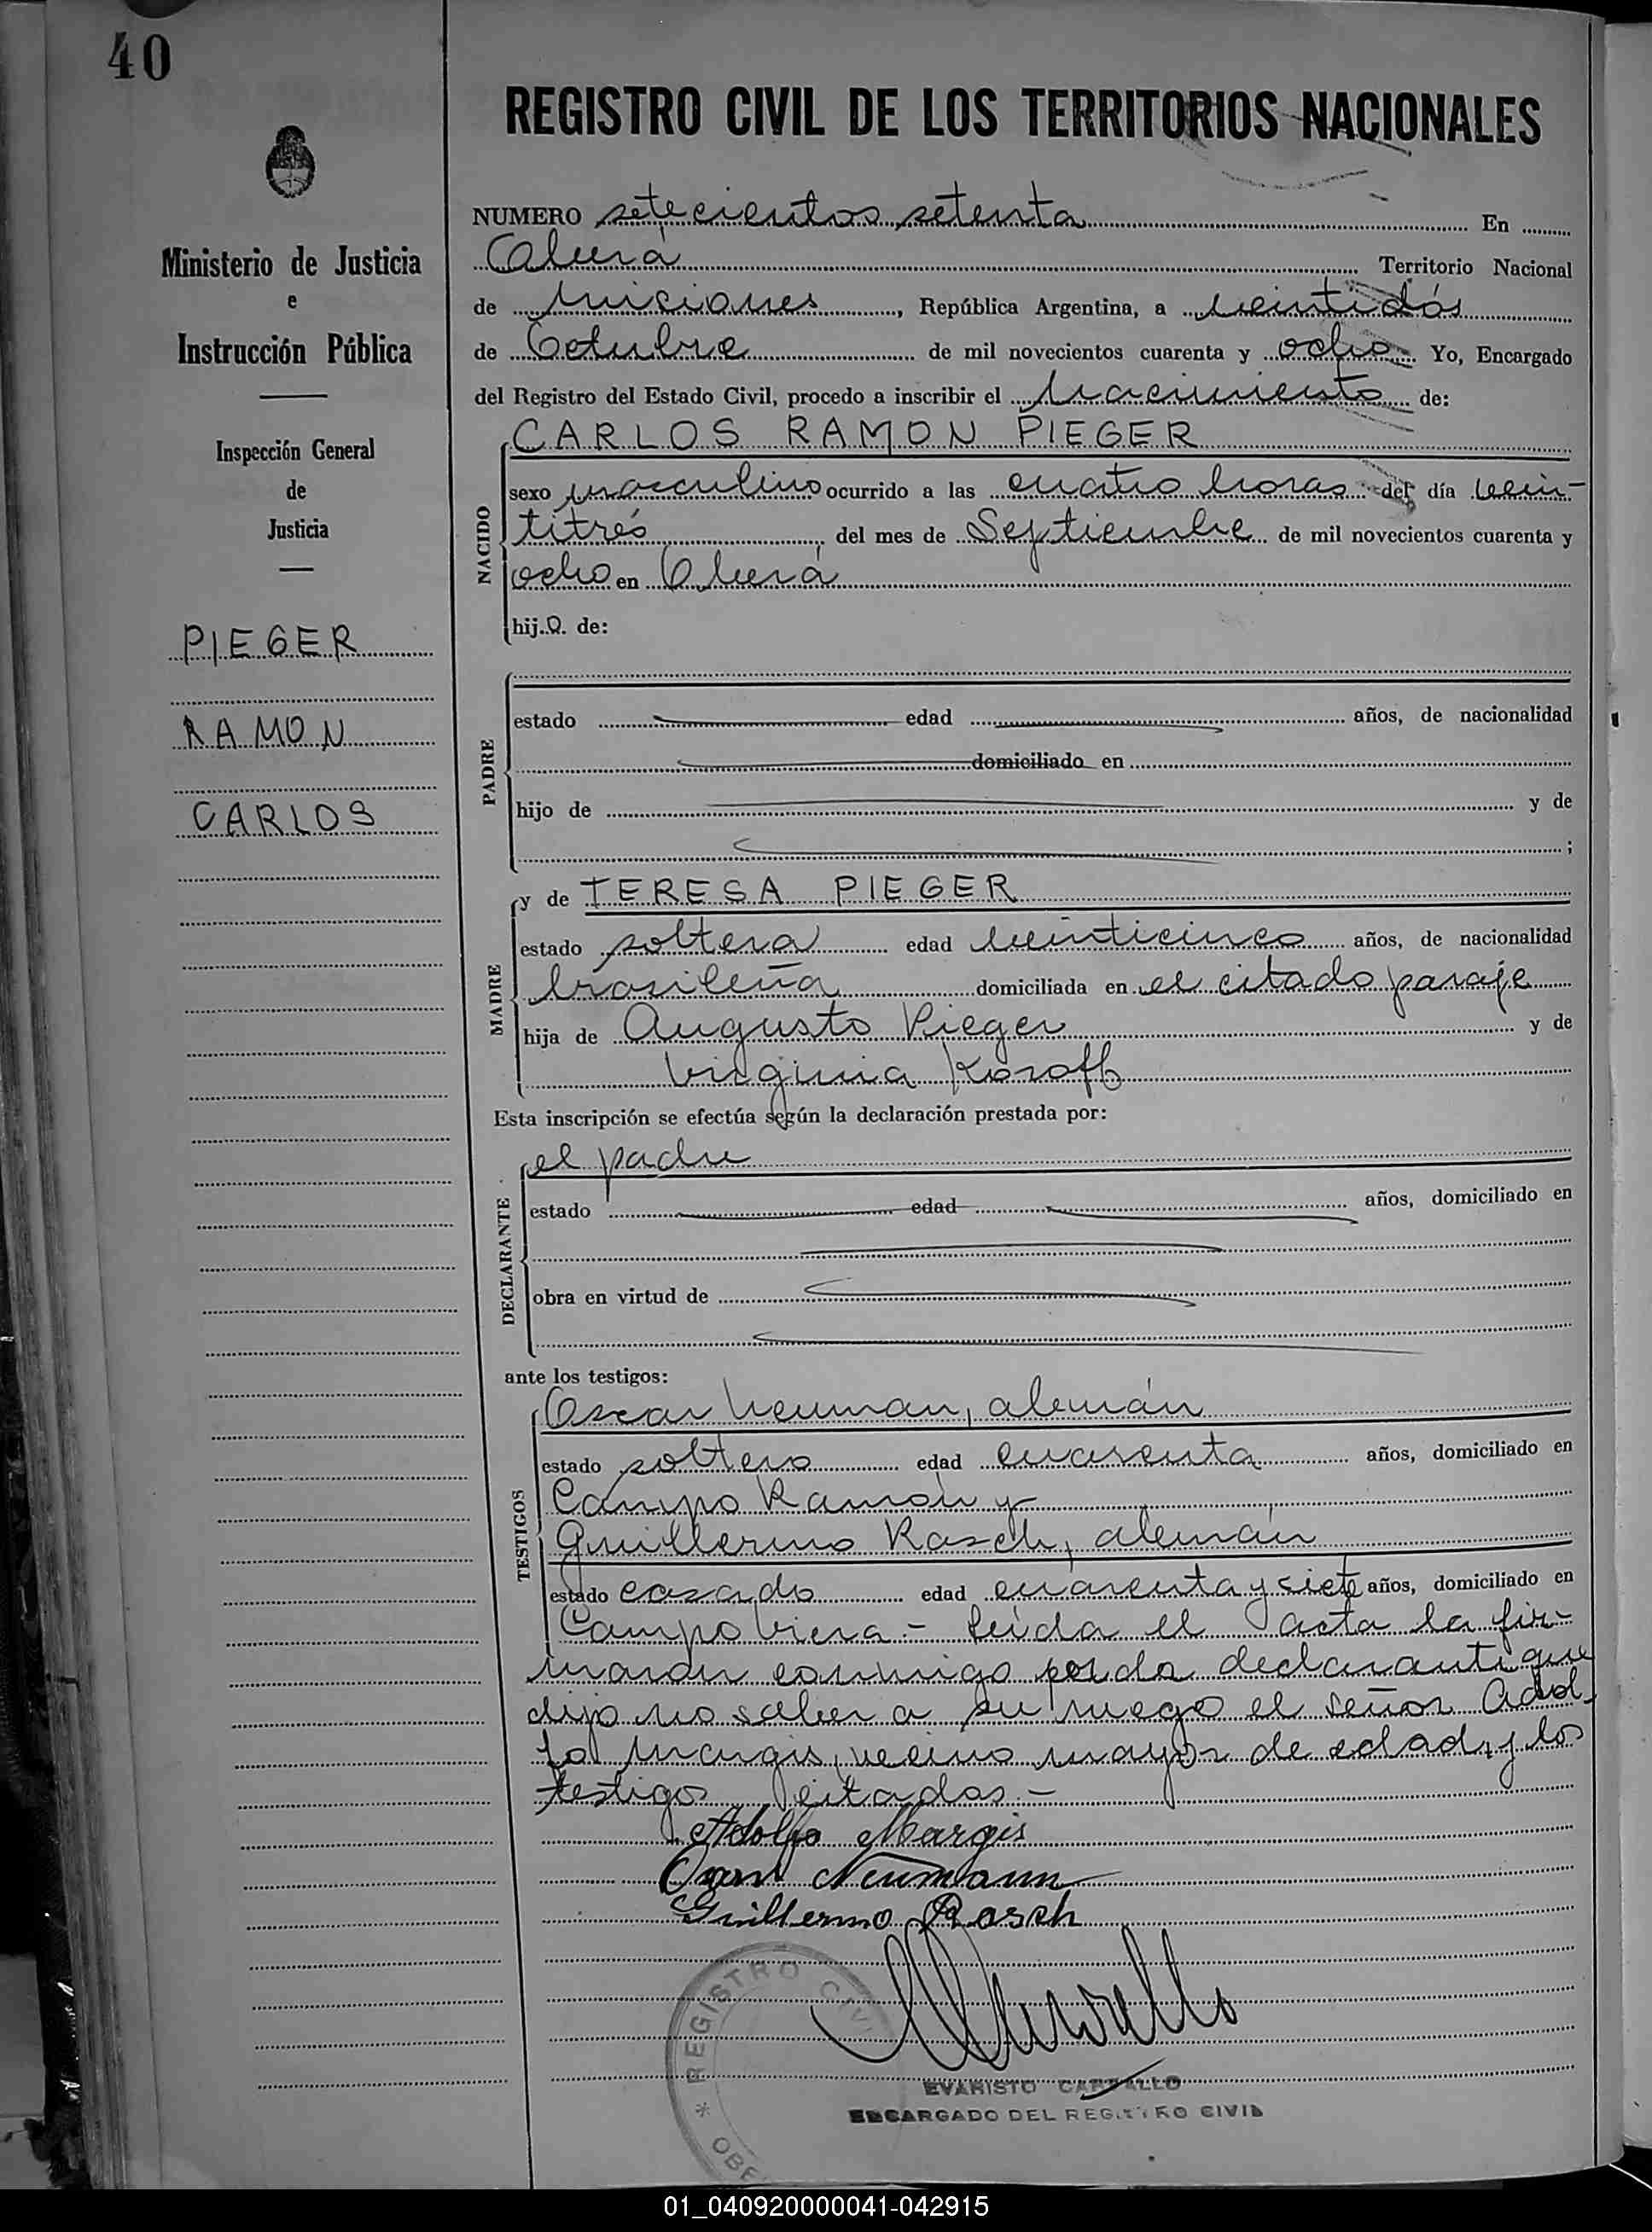 40
REGISTRO CIVIL DE LOS TERRITORIOS NACIONALES
Ministerio de Justicia
e
Instrucción Pública
Inspección General
de
Justicia
PIEGER
RAMON
CARLOS
NUMERO setecientos setenta En
Oberá Territorio Nacional
de Misiones, República Argentina, a veintidós
de Octubre de mil novecientos cuarenta y ocho Yo, Encargado
del Registro del Estado Civil, procedo a inscribir el nacimiento de:
CARLOS RAMON PIEGER
NACIDO
sexo masculino ocurrido a las cuatro horas del día vein-
titrés del mes de Septiembre de mil novecientos cuarenta y
ocho en Oberá
hijo de:
PADRE
estado edad años, de nacionalidad
domiciliado en
hijo de y de
;
y de TERESA PIEGER
MADRE
estado soltera edad veinticinco años, de nacionalidad
brasileña domiciliada en el citado paraje
hija de Augusto Pieger y de
Virginia Kosoff
Esta inscripción se efectúa según la declaración prestada por:
el padre
DECLARANTE
estado edad años, domiciliado en
obra en virtud de
ante los testigos:
Oscar Neuman, alemán
TESTIGOS
estado soltero edad cuarenta años, domiciliado en
Campo Ramón y
Guillermo Rasch, alemán
estado casado edad cuarenta y siete años, domiciliado en
Campo Viera - Leída el acta la fir-
maron conmigo por la declarante que
dijo no saber a su ruego el señor Adol-
fo Margis, vecino mayor de edad, y los
testigos citados.-
Adolfo Margis
Oscar Neumann
Guillermo Rasch
REGISTRO CIVI
* OBE
EVARISTO CARBALLO
ENCARGADO DEL REGISTRO CIVIL
01_040920000041-042915